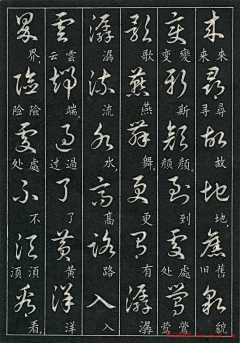 来来來尋寻尋故故地地，舊旧舊貌貌
變变變新新顔颜顏，到到處处處鶯莺鶯
歌歌燕燕舞舞，更更有有潺潺
潺潺流流水水，高高路路入入
雲云雲端端，過过過了了黄黄洋洋
界界，險险險處处處不不須须須看看。